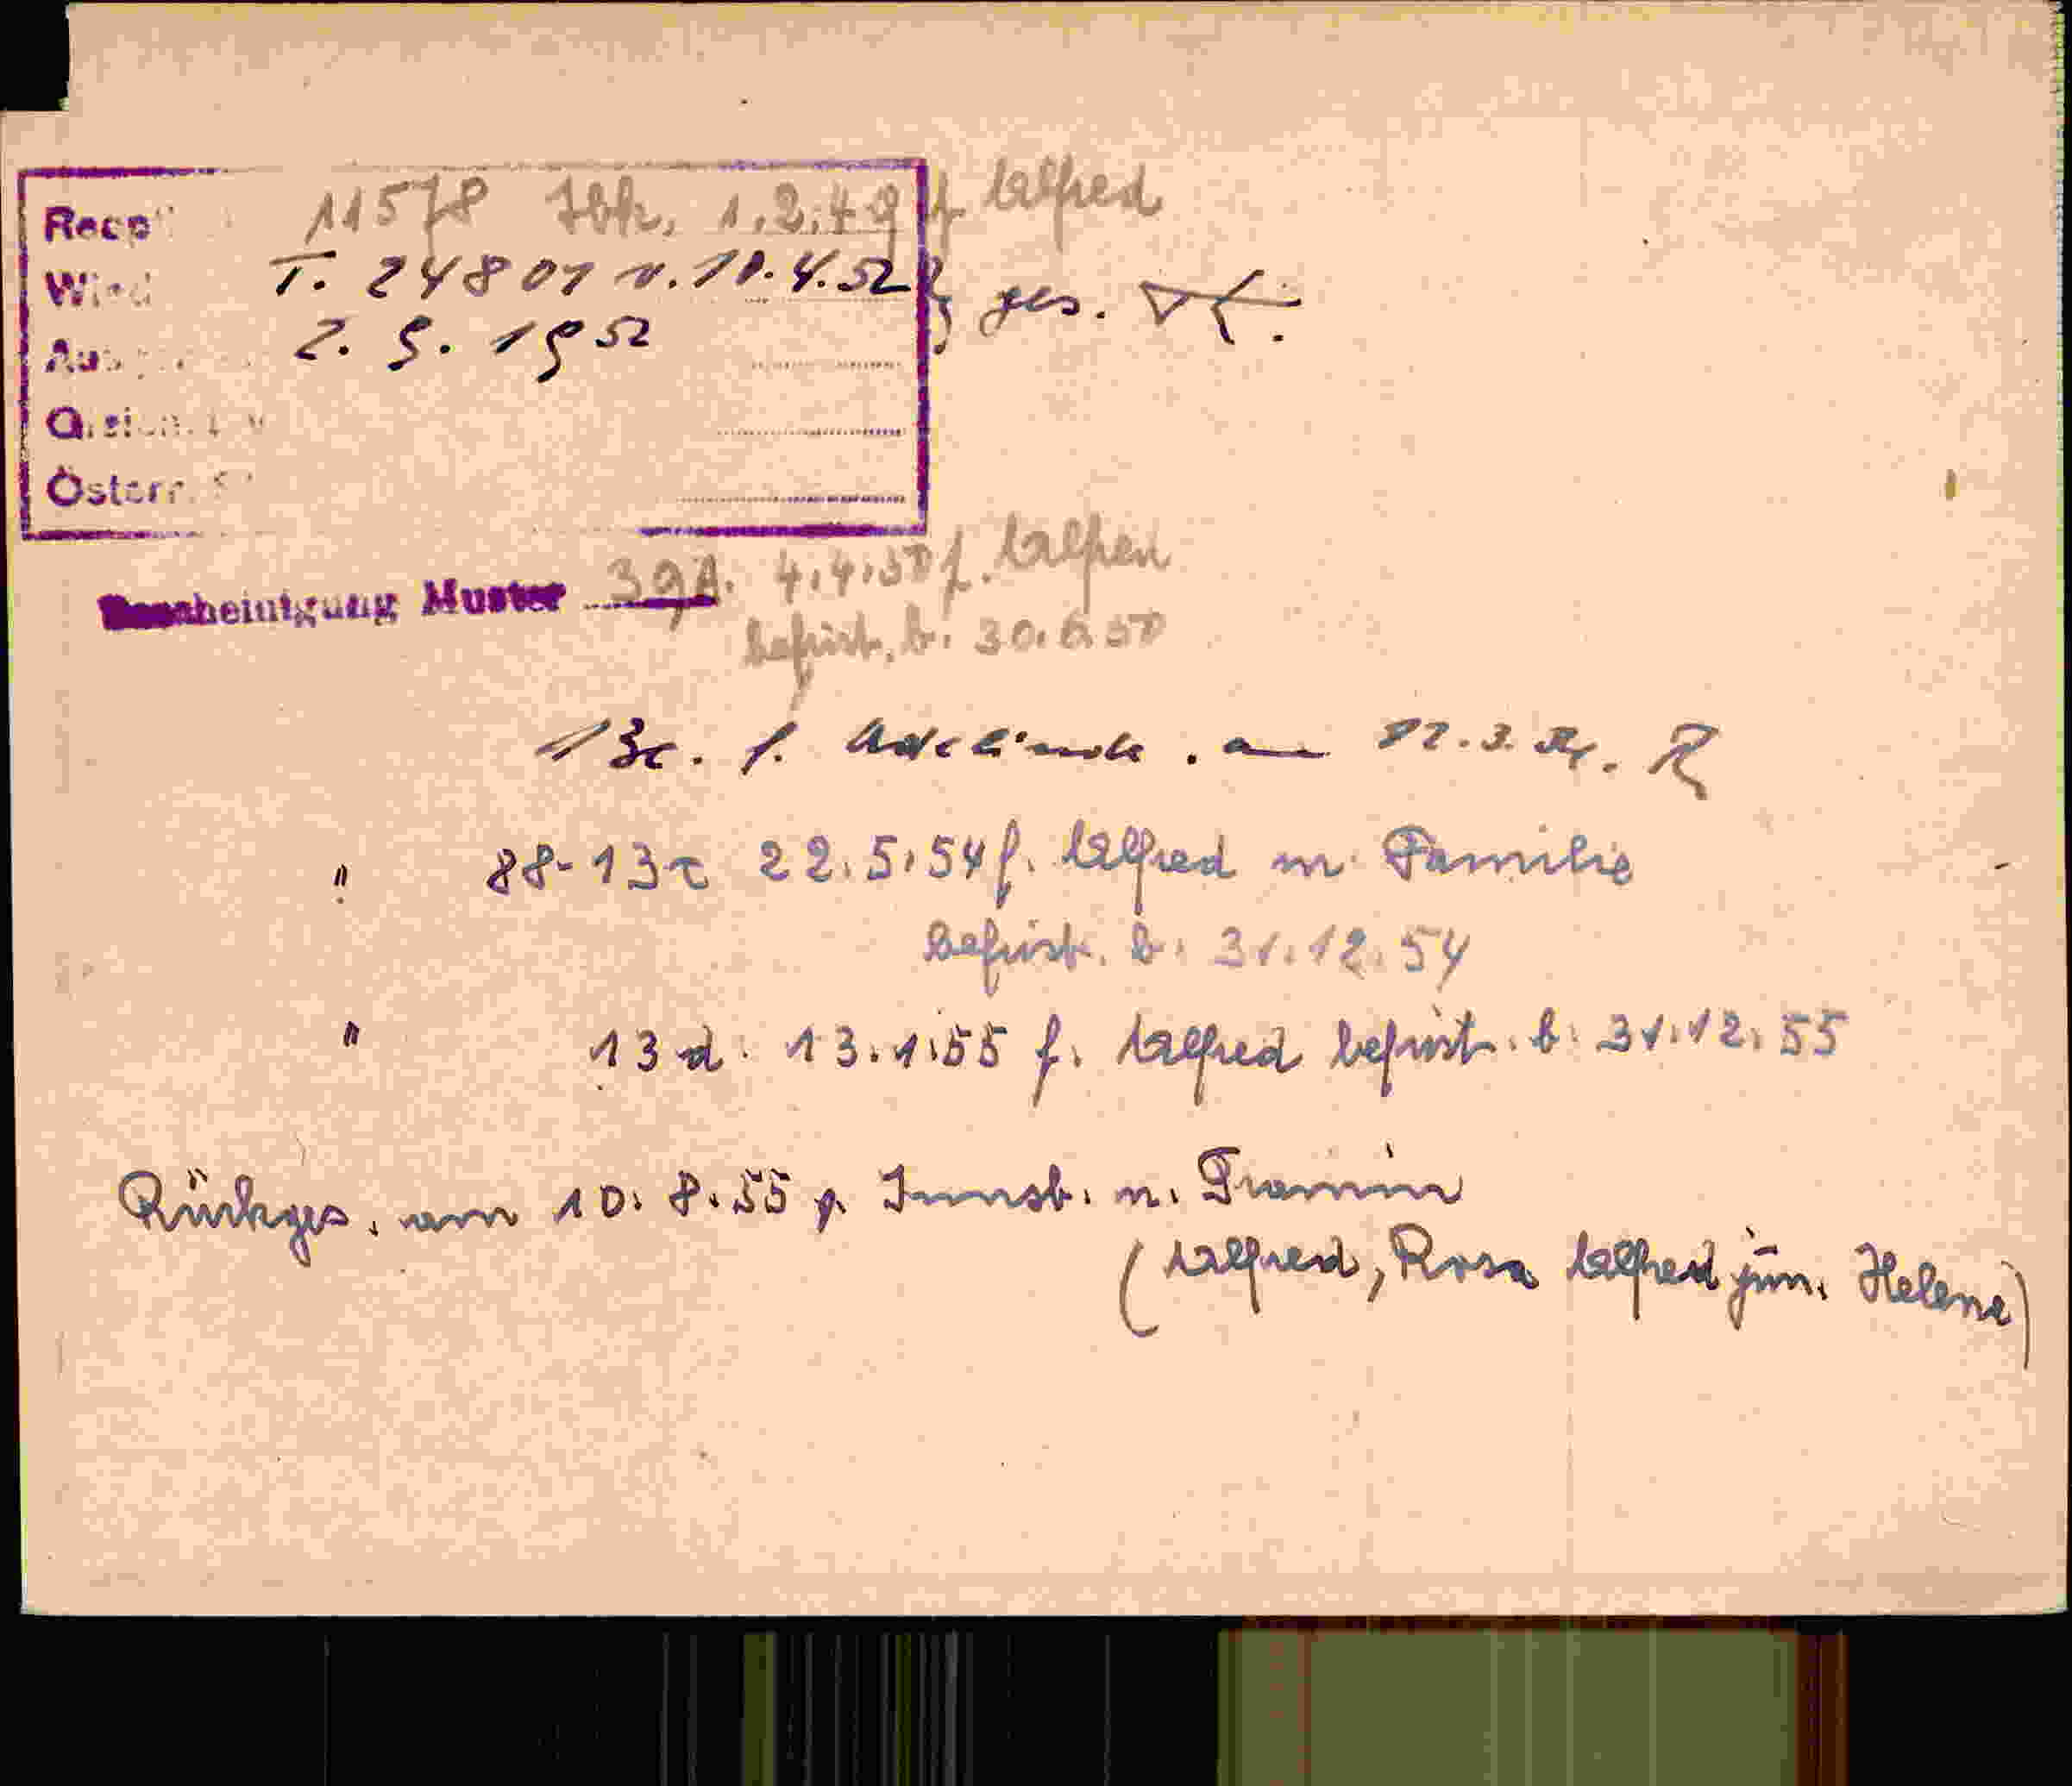 11578 Ibk. 1.2.49 f. Alfred
T. 24801 v. 10.4.52 } ges.
2. 9. 1952
Österr.
Bescheinigung Muster 39A. 4.4.50 f. Alfred
befrist. b. 30.6.50
13c. f. Adelinde. am
" 88-13c 22.5.54 f. Alfred m. Familie
befrist. b. 31.12.54
" 13d. 13.1.55 f. Alfred befrist. b. 31.12.55
Rückges. am 10.8.55 v. Innsb. n. Tramin
(Alfred, Rosa Alfred jun. Helene)